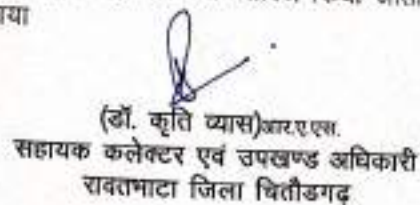 (डॉ. कृति व्यास)आर.ए.एस.
सहायक कलेक्टर एवं उपखण्ड अधिकारी
रावतभाटा जिला चितौडगढ़